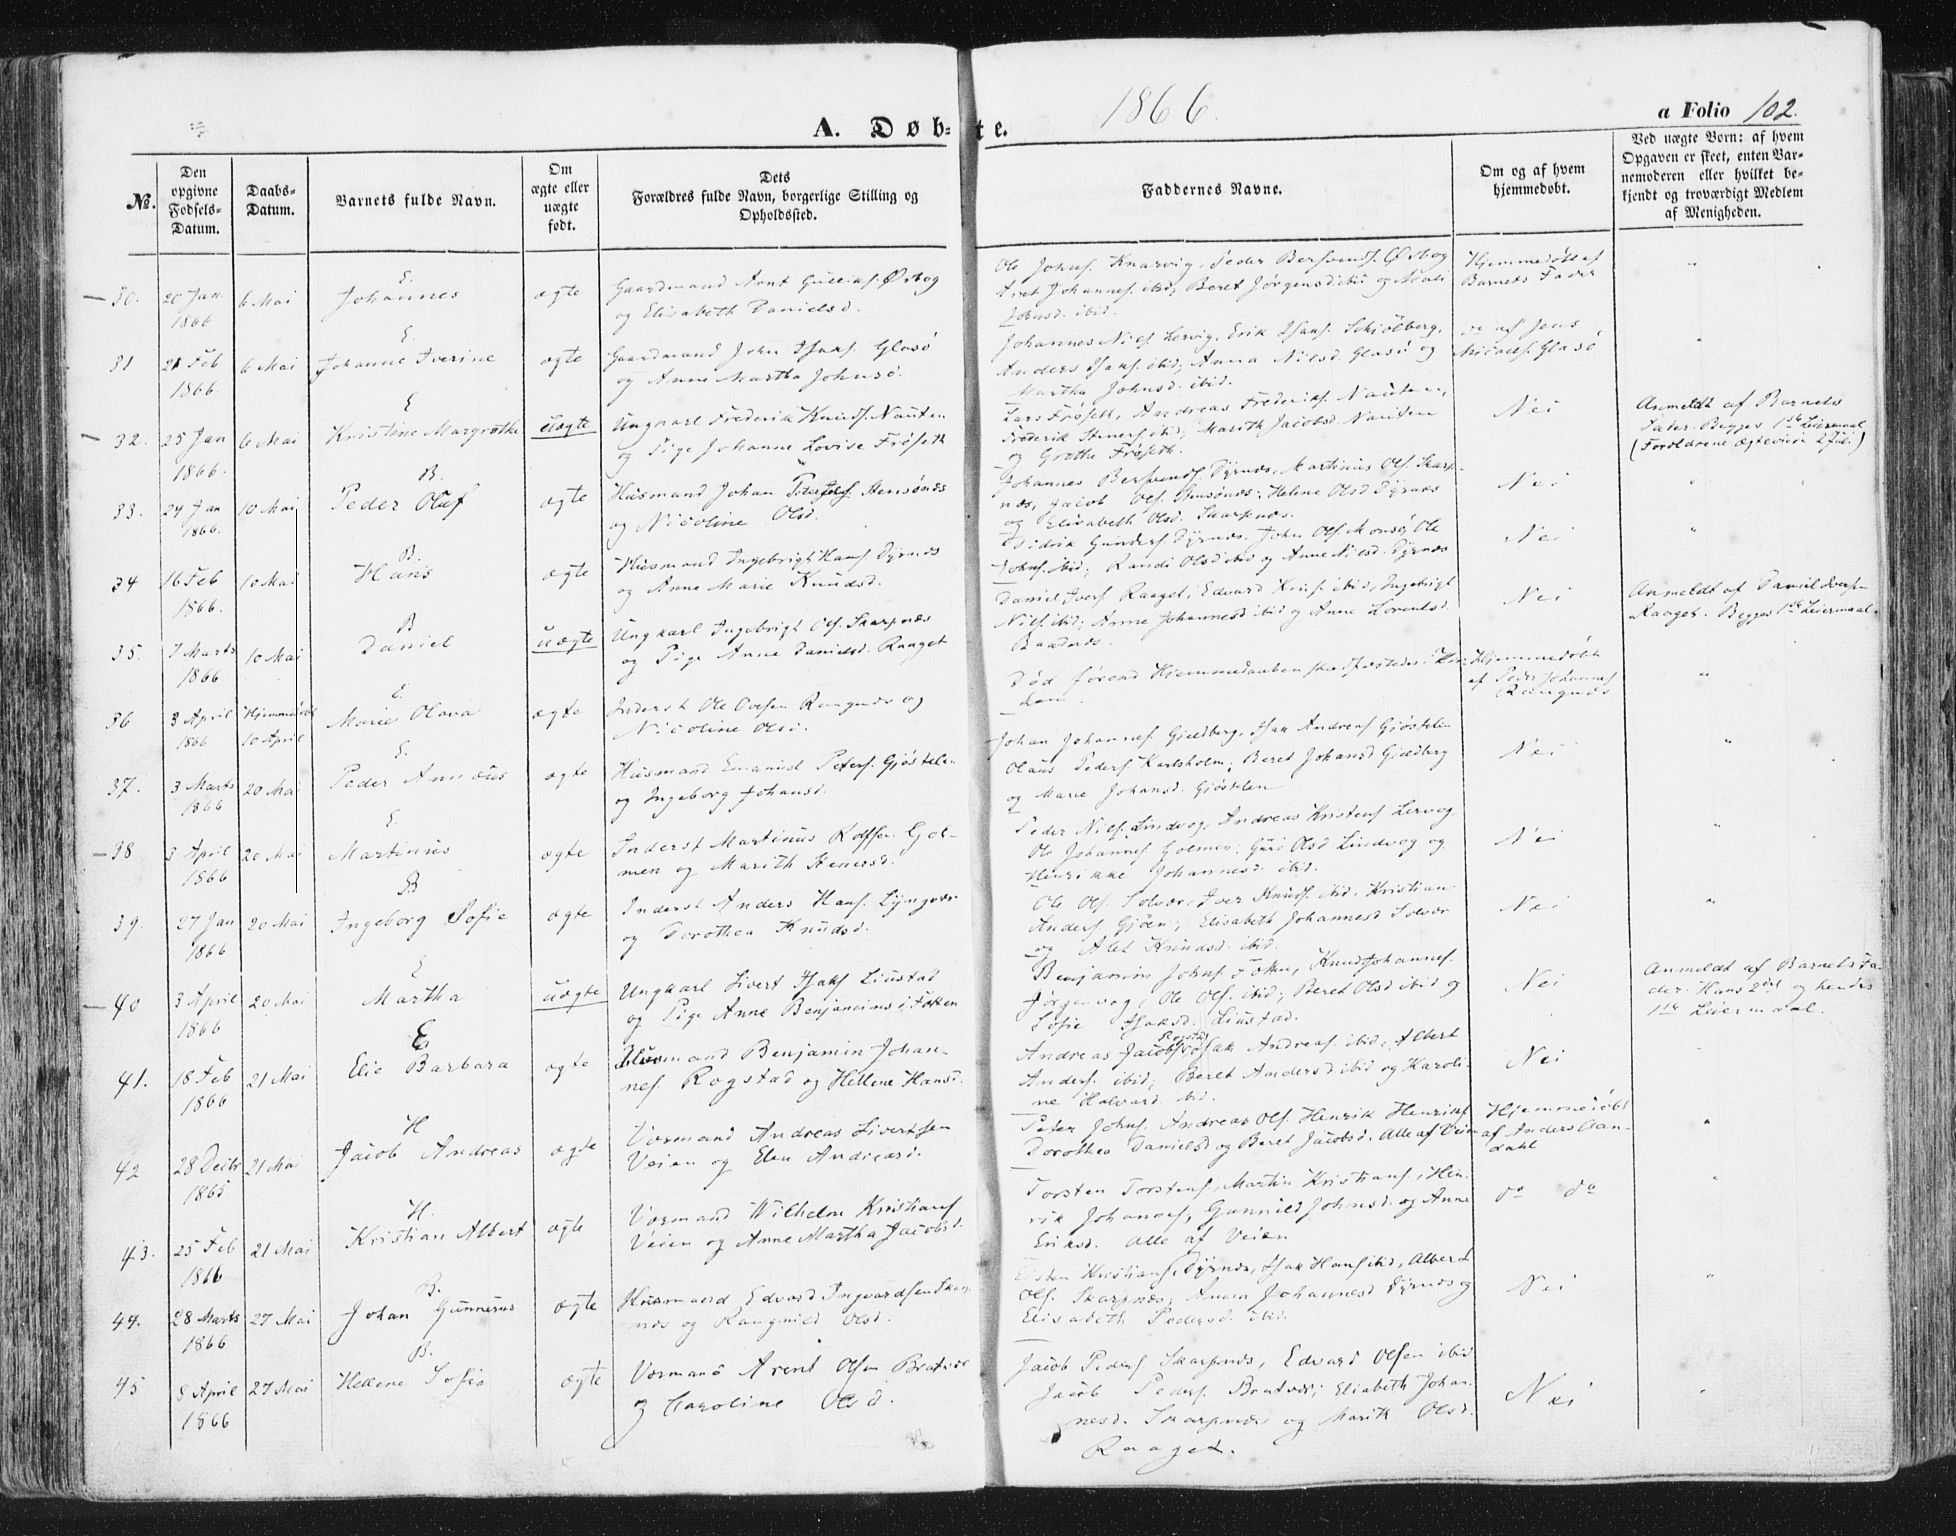 1866.
A. Døbte.
a Folio 102.
№.
Den opgivne Fødsels-Datum.
Daabs-Datum.
Barnets fulde Navn.
Om ægte eller uægte født.
Dets Forældres fulde Navn, borgerlige Stilling og Opholdssted.
Faddernes Navne.
Om og af hvem hjemmedøbt.
Ved uægte Born: af hvem Opgaven er skeet, enten Barnemoderen eller hvilket bekjendt og troværdigt Medlem af Menigheden.
E.
30. 20 Jan 1866 6 Mai Johannes ægte
og Elisabeth Danielsd.
Hjemmedøbt af
Barnets Fader
E
31 21 Feb 1866. 6 Mai Johanne Iverine ægte Gaardmand John Isaks. Glasö
og Anne Martha Johnsd.
Johannes Niels. Lervig, Erik Isaks. Schiölberg,
Anders Isaks. ibid; Anna Nilsd. Glasö og
Martha Johnsd. ibid.
do af Jens
E
32. 25 Jan 1866. 6 Mai Kristine Margrethe uægte Ungkarl Frederik Knuds. Nauten
og Pige Johanne Lovise Fröseth
Lars Fröseth, Andreas Frederiks. Nauten,
Frederik Steners. ibid; Marith Jacobsd. Nauten
og Grethe Fröseth.
Nei
Anmeldt af Barnets
Fader. Begges 1ste Leiermaal
B.
33. 24 Jan 1866. 10 Mai Peder Oluf ægte Husmand Johan
og Nicoline Olsd.
Johannes Bersvends. Dyrnes, Martinus Ols. Skarp-
nes, Jacob Ols. Stensönes; Heline Olsd Dyrnes
og Elisabeth Olsd. Skarpnes.
Nei
B.
34 16 Feb 1866. 10 Mai Hans ægte Husmand Ingebrigt Hans. Dyrnes
og Anne Marie Knudsd.
Didrik Gunders. Dyrnes, John Ols. Monsö, Ole
Johns. ibid; Randi Olsd ibid og Anne Nilsd. Dyrnes
Nei
B
35. 7 Marts 1866 10 Mai Daniel uægte Ungkarl Ingebrigt Ols. Skarpnes
og Pige Anne Danielsd. Raaget
Daniel Ivers. Raaget, Edvard Knuds. ibid, Ingebrigt
Nils. ibid; Anne Johannesd ibid og Anne Lorentsd.
Nei
Anmeldt af Daniel Ivers.
Raaget. Begges 1ste Leiermaal.
E.
36 3 April 1866 Hjemmedöbt 10 April Marie Olava ægte Inderst Ole Ovesen Rangnes og
Nicoline Olsd.
Död förend Hjemmedaaben
Hjemmedøbt
af Peder Johannes.
Rangnes
E.
37. 3 Marts 1866 20 Mai Peder Annæus ægte Husmand Emanuel Peters. Gjöstelen
og Ingeborg Johansd.
Johan Johannes. Gjeldberg, Isak Andreas. Gjöstelen
Olaus Peders. Karlsholm; Beret Johansd Gjeldberg
og Marie Johansd. Gjöstelen
Nei
E.
38 3 April 1866 20 Mai Martinus ægte Inderst Martinus Rolfsen Gol-
men og Marith Stenersd.
Peder Niels. Lindvog, Andreas Kristens. Lervog
Ole Johannes. Golmen; Guri Olsd Lindvog og
Henrikke Johannesd. ibid.
Nei
B
39. 27 Jan 1866 20 Mai Ingeborg Sofie ægte Inderst Anders Hans. Lyngvær
og Dorothea Knudsd.
Ole Ols. Solvær, Iver Knuds. ibid, Kristian
Anders. Gjöen; Elisabeth Johannesd Solvær
og Alet Knudsd. ibid.
Nei
E
40 3 April 1866 20 Mai Martha uægte Ungkarl Sivert Isaks. Liustad
og Pige Anne Benjaminsd. Fötten
Benjamin Johns. Fötten, Knud Johannes.
Jörgenvog, Ole Ols. ibid; Beret Olsd ibid og
Sofie Isaksd. Liustad.
Nei
Anmeldt af Barnets Fa-
der. Hans 2det og hendes
1ste Leiermaal.
E
41. 18 Feb 1866 21 Mai Elie Barbara ægte Husmand Benjamin Johan-
nes. Rogstad og Hellene Hansd.
Andreas Jacobs. Rogstad, Isak Andreas. ibid, Albert
Anders. ibid; Beret Andersd ibid og Karoli-
ne Halvard. ibid.
Nei
H
42 28 Decbr 1865 21 Mai Jacob Andreas ægte Vormand Andreas Sivertsen
Veien og Elen Andreasd.
Peter Johns. Andreas Ols. Henrik Henriks.
Dorothea Danielsd og Beret Jacobsd. Alle af Veien
Hjemmedøbt
af Anders Aan-
dahl
H.
43. 25 Feb 1866 21 Mai Kristian Albert ægte Vormand Wilhelm Kristians.
Veien og Anne Martha Jacobsd.
Torsten Torstens, Martin Kristians., Hen-
rik Johannes, Gunnild Johnsd. og Anne
Eriksd. Alle af Veien
do do
B.
44. 28 Marts 1866 27 Mai Johan Gunnerus ægte Husmand Edvard Ingvardsen Skarp-
nes og Rangnild Olsd.
Eisten Kristians. Dyrnes, Isak Hans. ibid, Albert
Ols. Skarpnes; Anna Johannesd Dyrnes og
Elisabeth Pedersd. ibid.
Nei
B.
45 8 April 1866 27 Mai Hellene Sofie ægte Vormand Arent Olsen Bratvær
og Caroline Olsd.
Jacob Peders. Skarpnes, Edvard Olsen ibid
Jacob Peders. Bratvær; Elisabeth Johan-
nesd. Skarpnes og Marith Olsd.
Raaget.
Nei